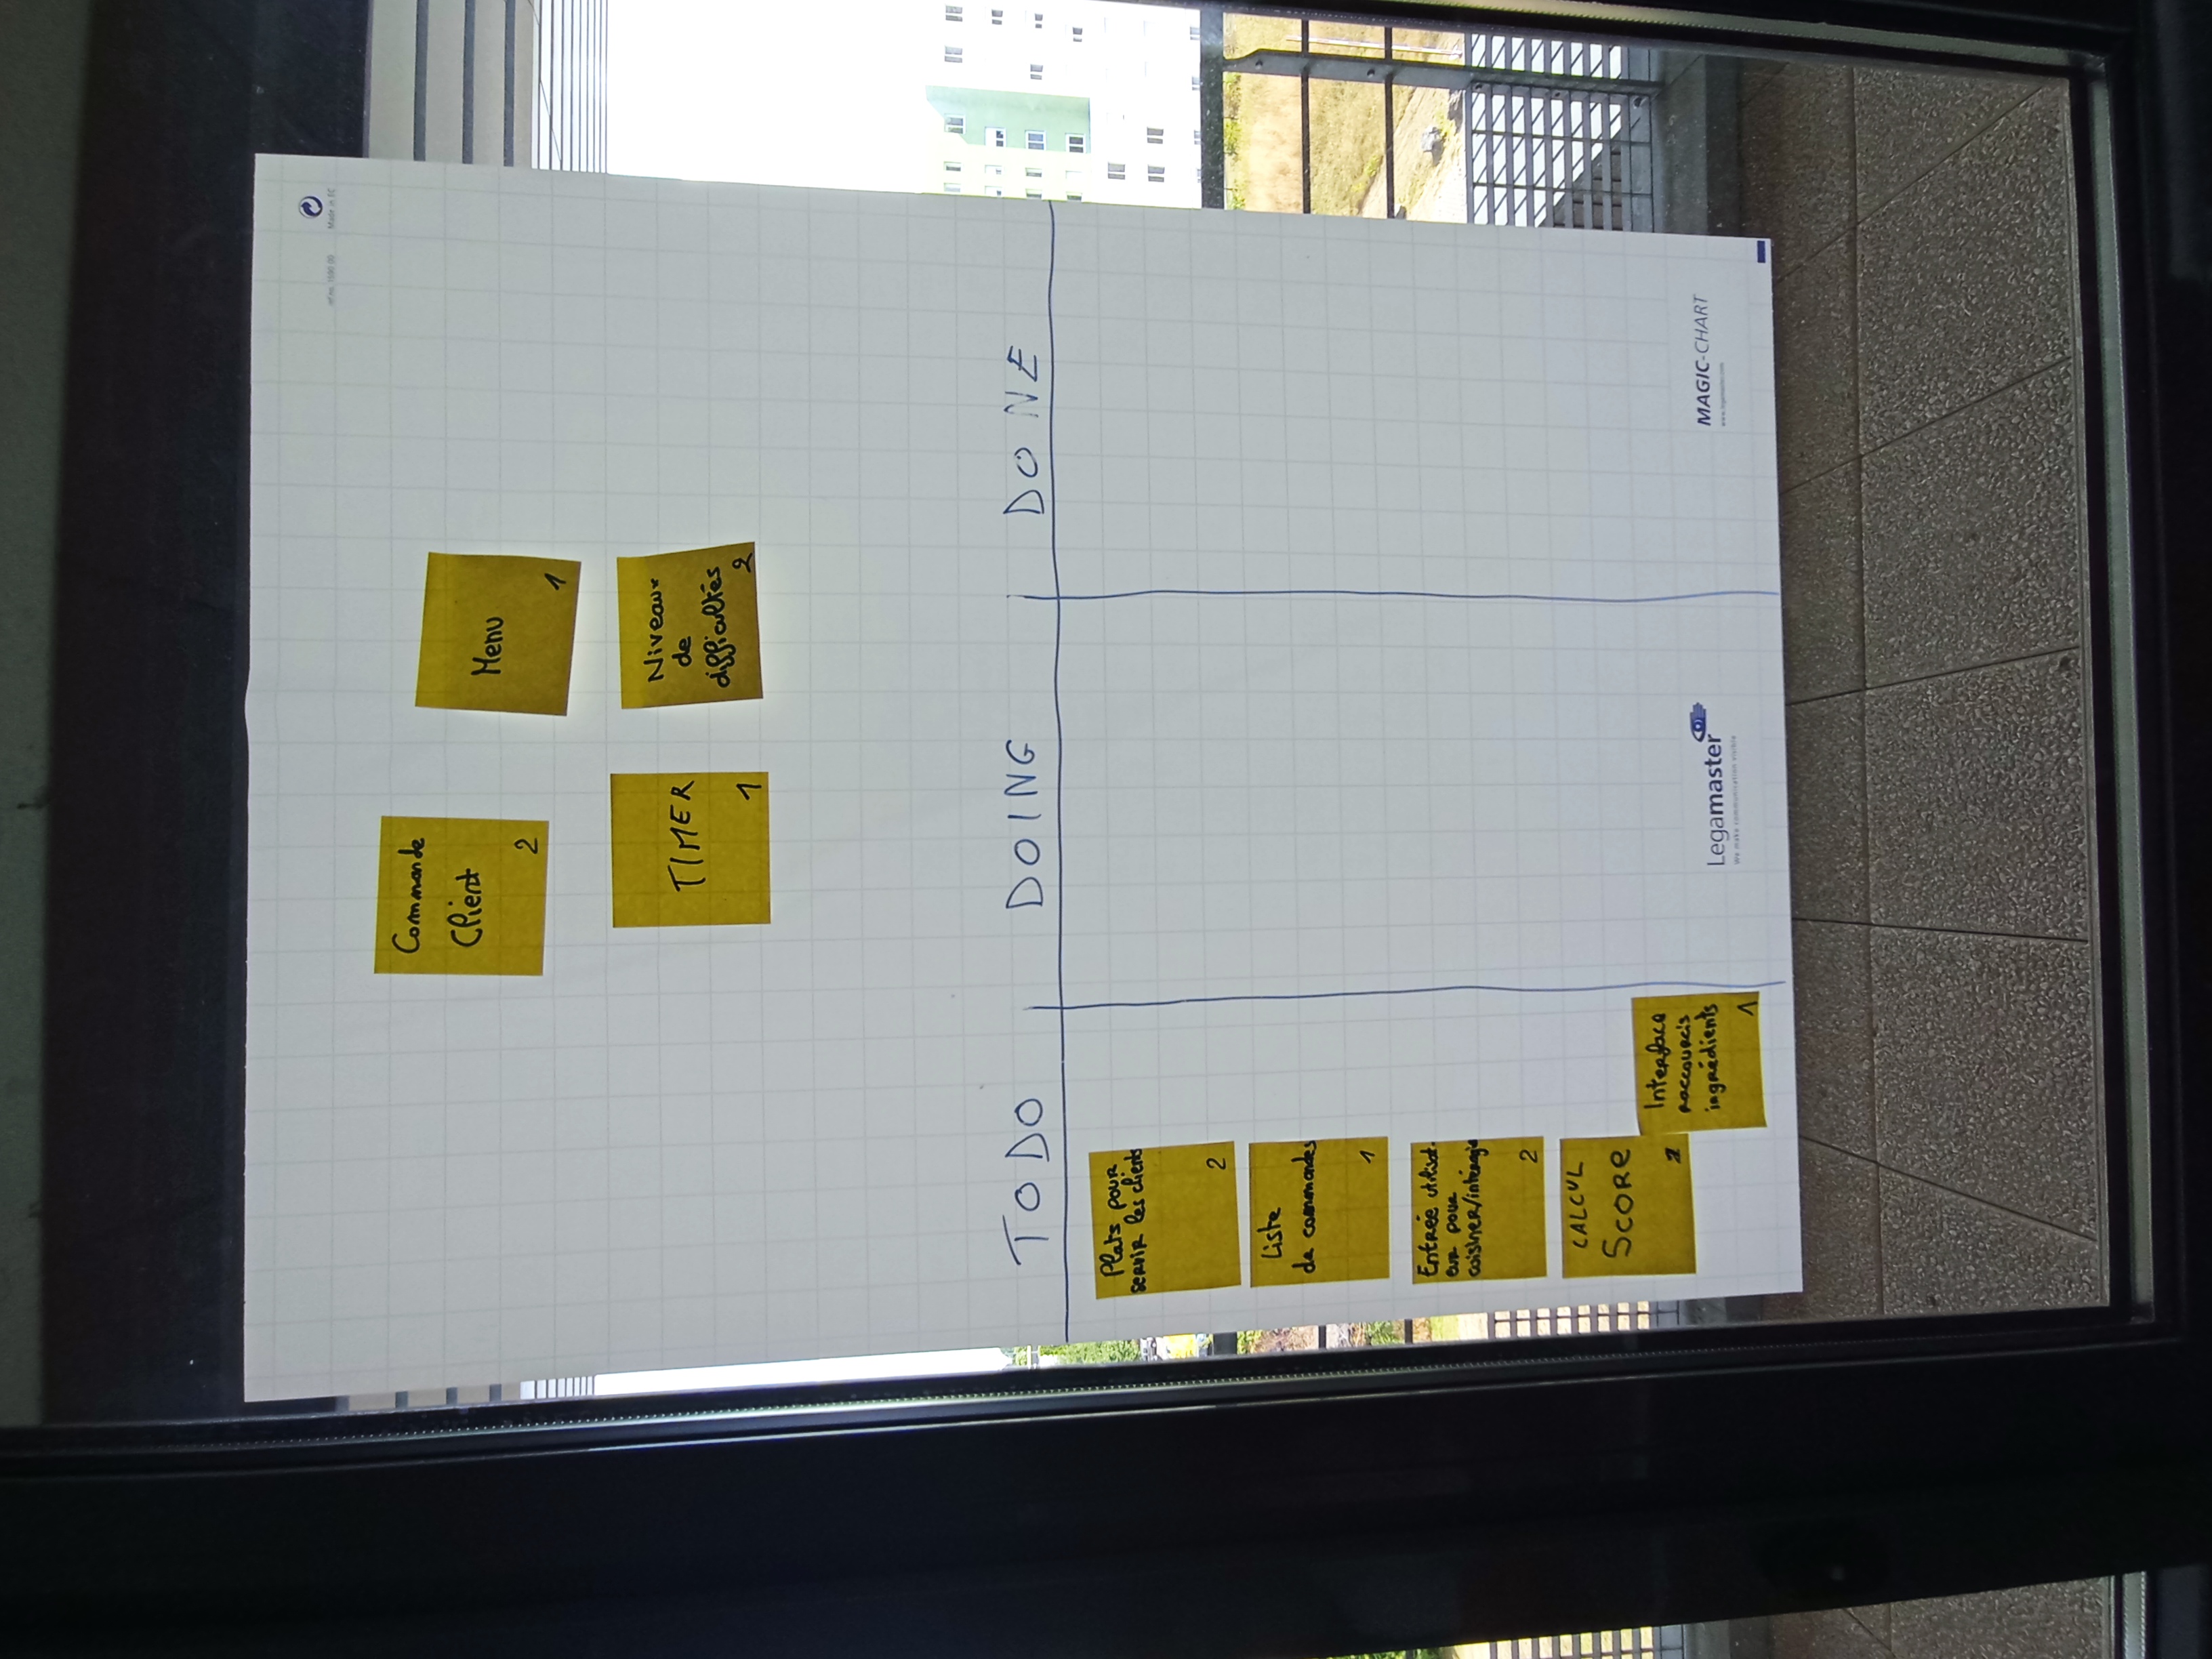 Made in EC
Commande
Client
2
Menu
1
TIMER
1
Niveaux
de
difficultés
2
TODO
DOING
DONE
Plats pour
servir les clients
2
Liste
de commandes
1
Entrée utilisat-
eur pour
cuisiner/intéragir
2
CALCUL
SCORE
Interface
raccourcis
ingrédients
1
Legamaster
We make communication visible
MAGIC-CHART
www.legamaster.com